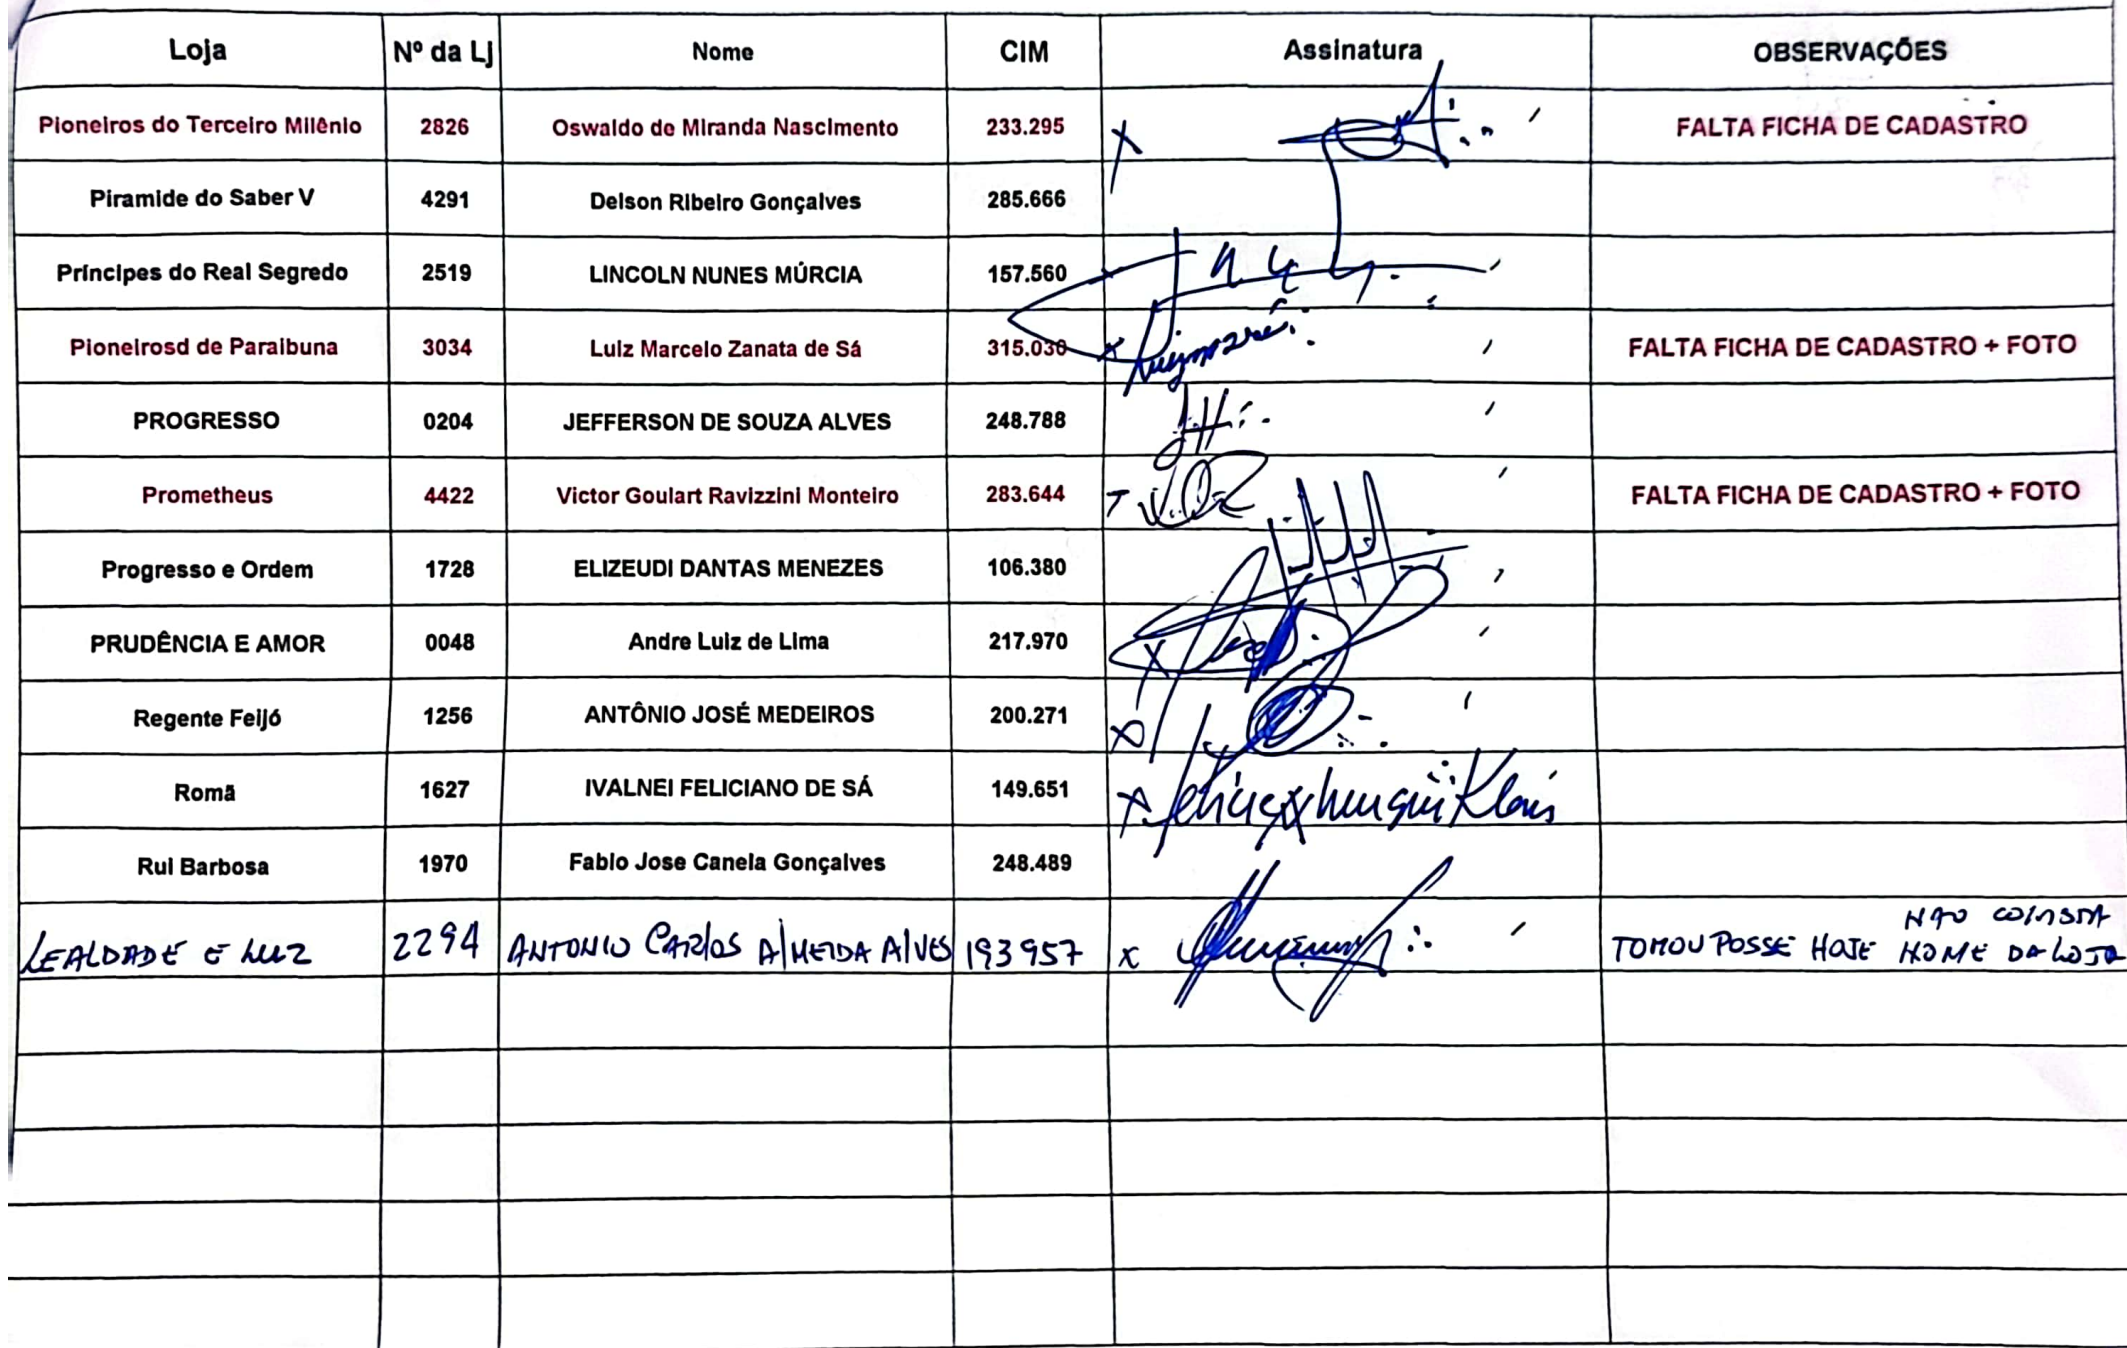 Loja Nº da Lj Nome CIM Assinatura OBSERVAÇÕES
Pioneiros do Terceiro Milênio 2826 Oswaldo de Miranda Nascimento 233.295 FALTA FICHA DE CADASTRO
Piramide do Saber V 4291 Delson Ribeiro Gonçalves 285.666
Príncipes do Real Segredo 2519 LINCOLN NUNES MÚRCIA 157.560
Pioneirosd de Paraibuna 3034 Luiz Marcelo Zanata de Sá 315.030 FALTA FICHA DE CADASTRO + FOTO
PROGRESSO 0204 JEFFERSON DE SOUZA ALVES 248.788
Prometheus 4422 Victor Goulart Ravizzini Monteiro 283.644 FALTA FICHA DE CADASTRO + FOTO
Progresso e Ordem 1728 ELIZEUDI DANTAS MENEZES 106.380
PRUDÊNCIA E AMOR 0048 Andre Luiz de Lima 217.970
Regente Feijó 1256 ANTÔNIO JOSÉ MEDEIROS 200.271
Romã 1627 IVALNEI FELICIANO DE SÁ 149.651
Rui Barbosa 1970 Fabio Jose Canela Gonçalves 248.489
LEALDADE E LUZ 2294 ANTONIO CARLOS ALMEIDA ALVES 193957 x TOMOU POSSE HOJE NÃO CONSTA
NOME DA LOJA